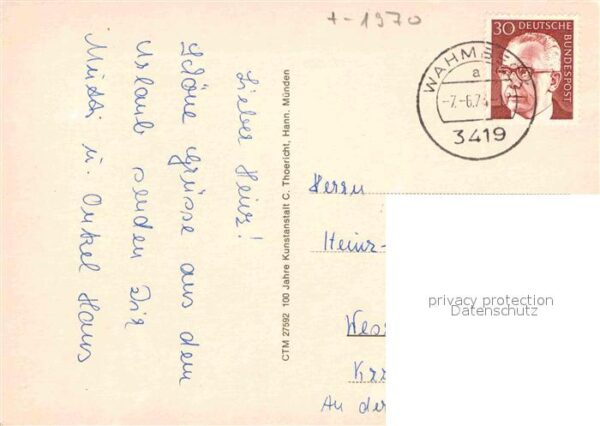 +-1970
30 DEUTSCHE
BUNDESPOST
a
3419
Lieber Heinz!
Schöne Grüsse aus dem
Urlaub senden Dir
Mutti u. Onkel Hans
CTM 27592 100 Jahre Kunstanstalt C. Thoericht, Hann. Münden
Herrn
Heinz-
Wes
An der
privacy protection
Datenschutz